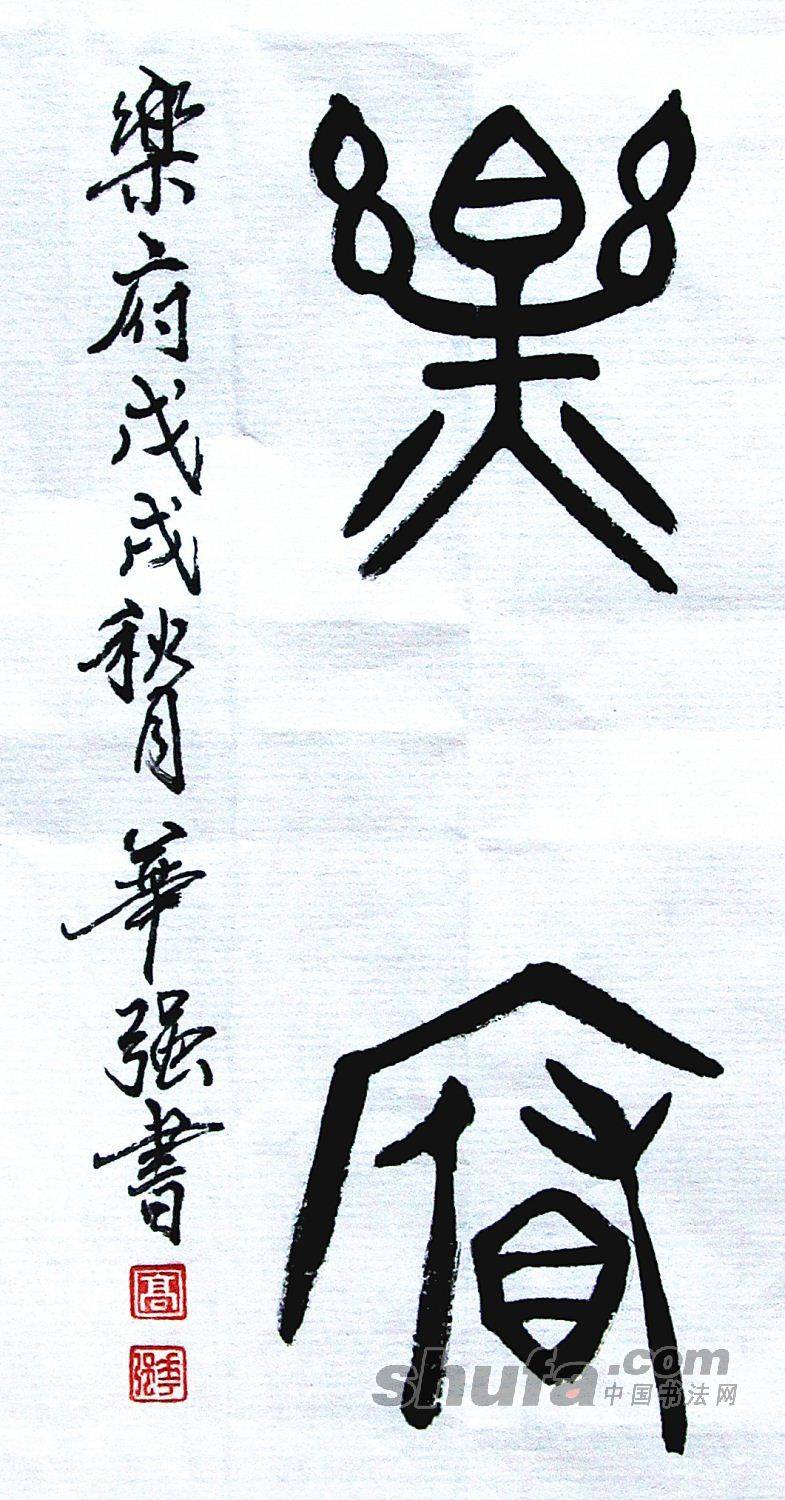 樂府
樂府戊戌秋月華強書
高
華強
shufa.com
中国书法网